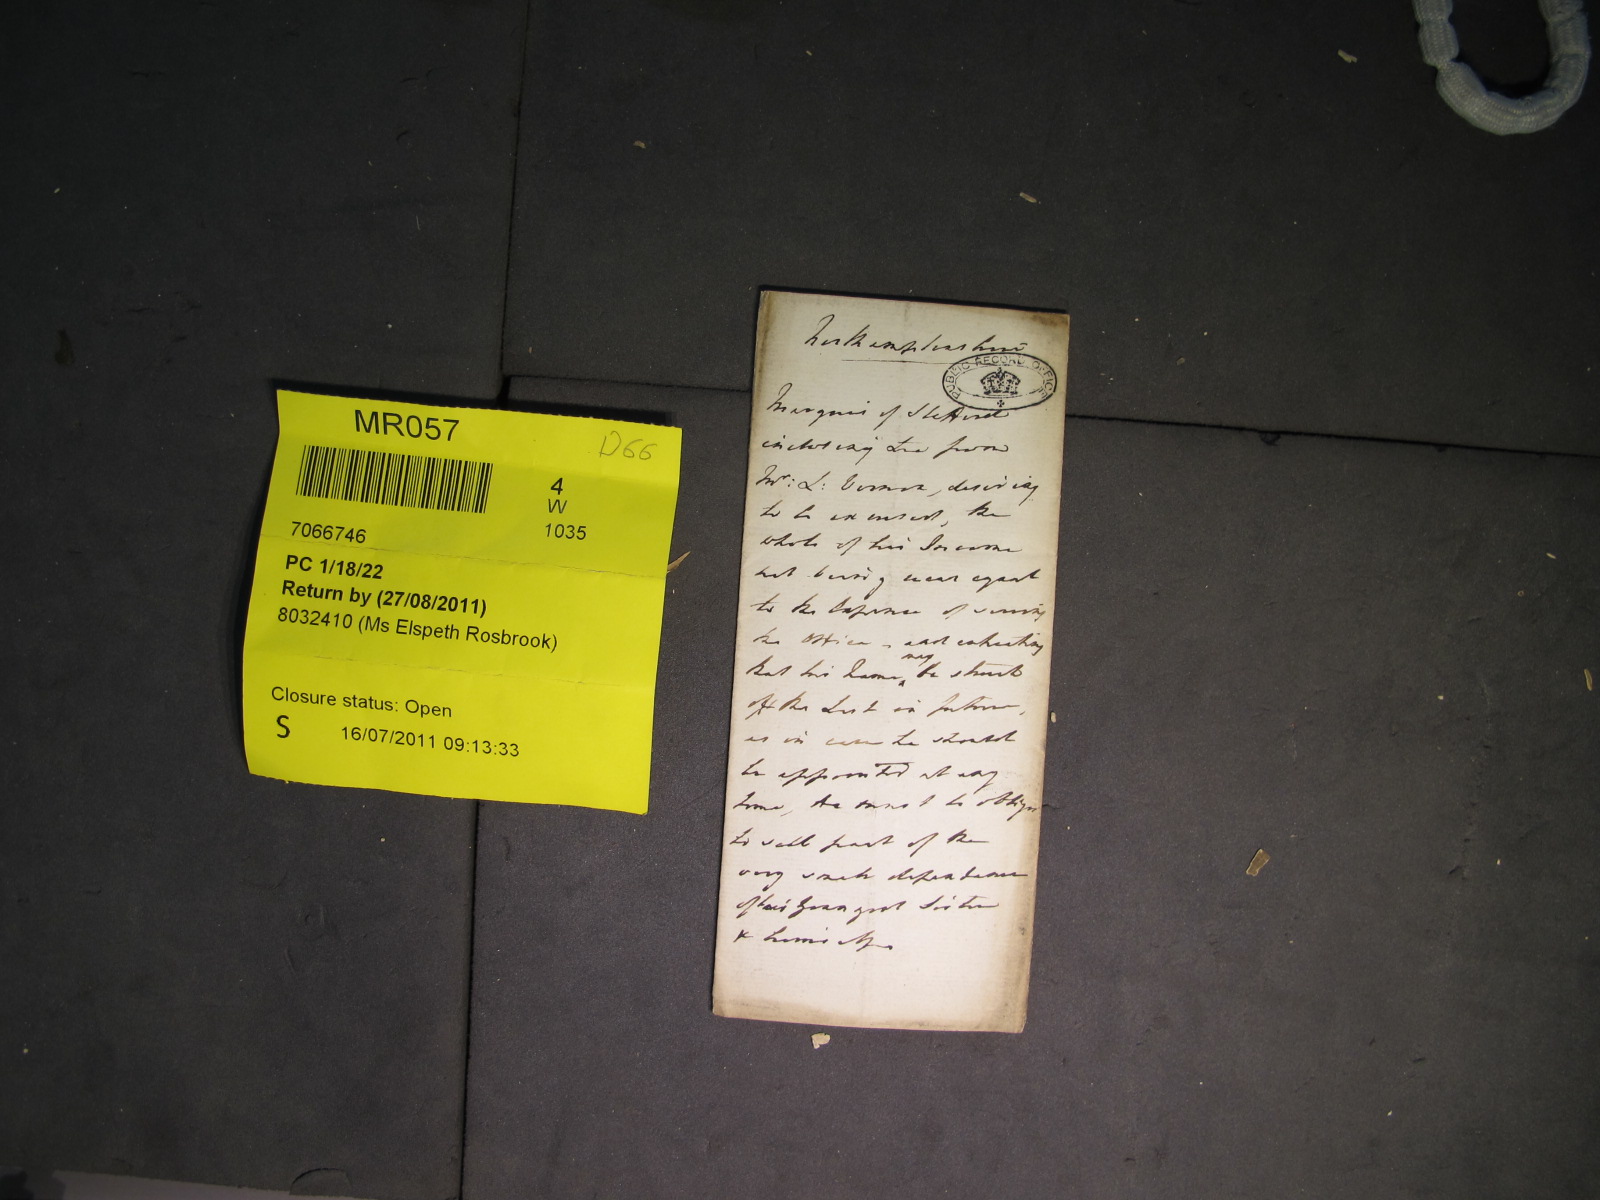 MR057
D66
4
W
7066746
1035
PC 1/18/22
Return by (27/08/2011)
8032410 (Ms Elspeth Rosbrook)
Closure status: Open
S 16/07/2011 09:13:33
Northamptonshire
PUBLIC RECORD OFFICE
Marquis of Stafford
inclosing Lre from
Mr: L: Vernon, desiring
to be excused, the
whole of his Income
not being near equal
to the Expence of serving
the Office, and entreating
that his Name may be struck
off the List in future,
as in case he should
be appointed at any
time, he must be obliged
to sell part of the
very small dependance
of his Youngest Sister
& himself.